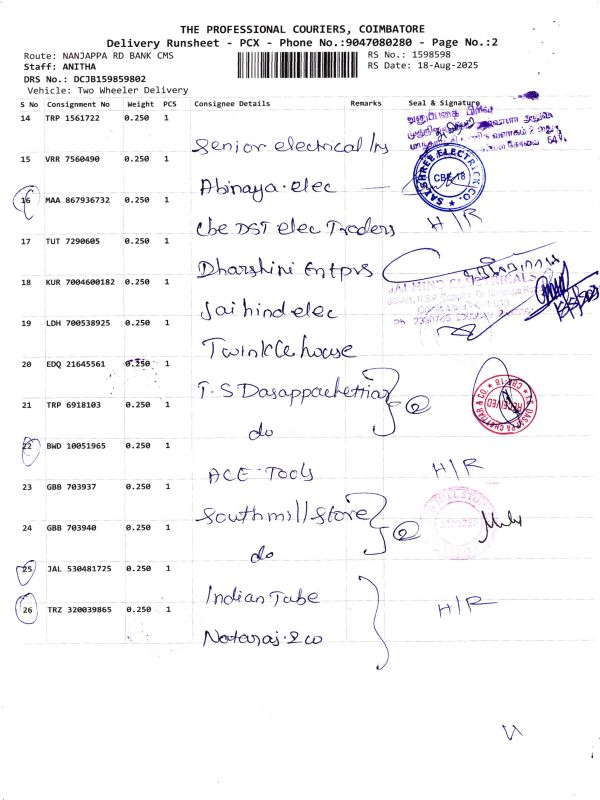 THE PROFESSIONAL COURIERS, COIMBATORE
Delivery Runsheet - PCX - Phone No.:9047080280 - Page No.:2
Route: NANJAPPA RD BANK CMS RS No.: 1598598
Staff: ANITHA RS Date: 18-Aug-2025
DRS No.: DCJB159859802
Vehicle: Two Wheeler Delivery
S No Consignment No Weight PCS Consignee Details Remarks Seal & Signature
14 TRP 1561722 0.250 1
Senior electrical
15 VRR 7560490 0.250 1
Abinaya.elec
SAI SHREE ELECTRICK CO. CBE-18
16 MAA 867936732 0.250 1
Cbe DST elec Traders H/R
17 TUT 7290605 0.250 1
Dharshini Entprs
18 KUR 7004600182 0.250 1
JAI HIND ELECTRICALS
Jaihind elec
19 LDH 700538925 0.250 1
Twinkle house
20 EDQ 21645561 0.250 1
T.S Dasappachettiar
21 TRP 6918103 0.250 1
do 2
RECEIVED
CBE-18
22 BWD 10051965 0.250 1
ACE Tools H/R
23 GBB 703937 0.250 1
Southmill Store
24 GBB 703940 0.250 1
do 2
25 JAL 530481725 0.250 1
Indian Tube
26 TRZ 320039865 0.250 1
H/R
Nataraj.2w